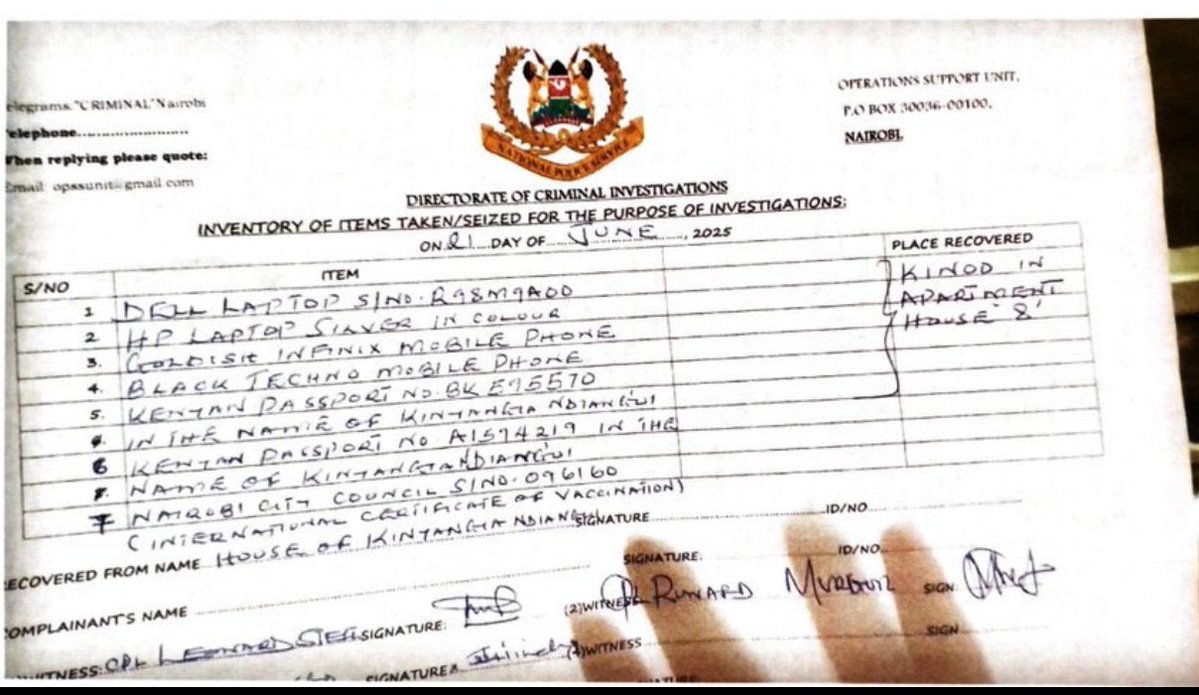 OPERATIONS SUPPORT UNIT,
elegrams."CRIMINAL"Nairobi
P.O BOX 30036-00100,
elephone..........................
NAIROBI.
When replying please quote:
Email: opssunit@gmail.com
NATIONAL POLICE SERVICE
DIRECTORATE OF CRIMINAL INVESTIGATIONS
INVENTORY OF ITEMS TAKEN/SEIZED FOR THE PURPOSE OF INVESTIGATIONS:
ON 21 DAY OF JUNE, 2025
S/NO ITEM PLACE RECOVERED
1 DELL LAPTOP S/NO. R98M9A00 KINOO IN
2 HP LAPTOP SILVER IN COLOUR APARTMENT
3. GOLDISH INFINIX MOBILE PHONE HOUSE '8'
4. BLACK TECHNO MOBILE PHONE
5. KENYAN PASSPORT NO. BK E95570
6. IN THE NAME OF KINYANGIA NDIANGUI
6 KENYAN PASSPORT NO A1574219 IN THE
7. NAME OF KINYANGIA NDIANGUI
7 NAIROBI CITY COUNCIL S/NO. 096160
(INTERNATIONAL CERTIFICATE OF VACCINATION)
ECOVERED FROM NAME HOUSE OF KINYANGIA NDIANGUI SIGNATURE ID/NO
COMPLAINANT'S NAME SIGNATURE: ID/NO
WITNESS: CPL LEONARD SIGNATURE: (2)WITNESS SIGN
SIGNATURE WITNESS SIGN